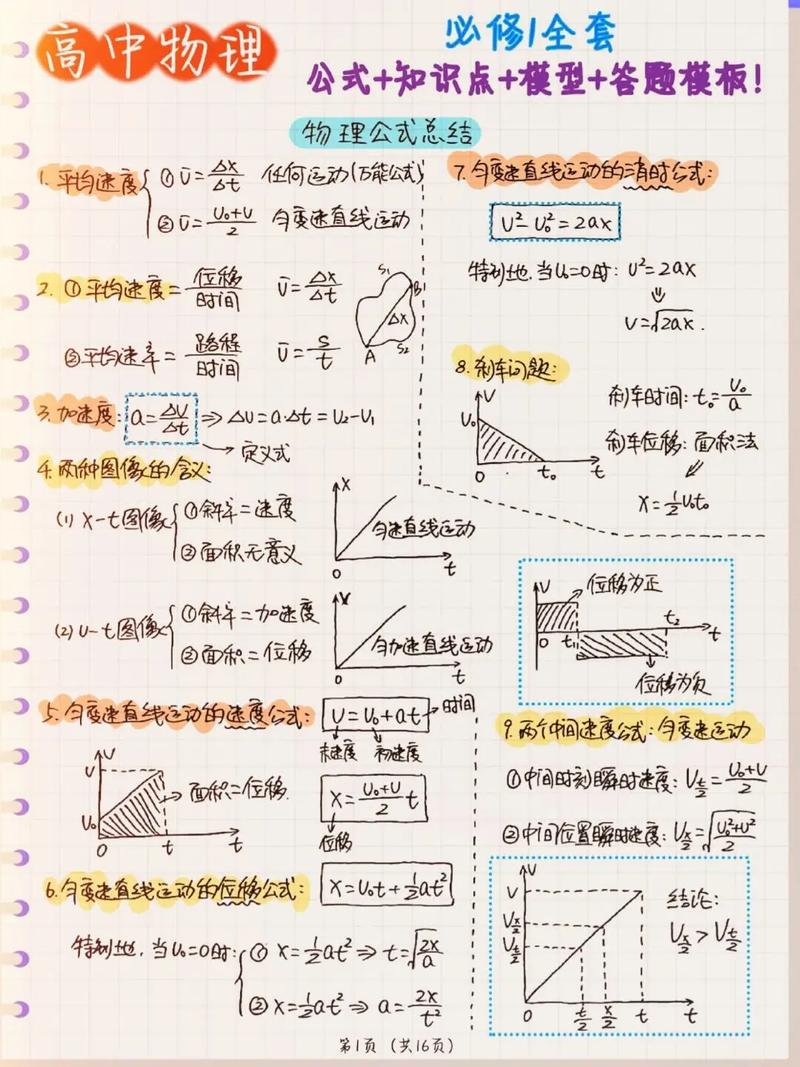 高中物理
必修1全套
公式+知识点+模型+答题模板!
物理公式总结
1. 平均速度
① ῡ=Δx/Δt 任何运动(万能公式)
② ῡ=(υ₀+υ)/2 匀变速直线运动
2. ①平均速度=位移/时间 ῡ=Δx/Δt
②平均速率=路程/时间 ῡ=s/t
S₁
B
Δx
A
S₂
3. 加速度: a=Δυ/Δt ⇒ Δυ=a·Δt=υ₂-υ₁
→定义式
4. 两种图像的含义:
(1) x-t图像
①斜率=速度
②面积无意义
x
匀速直线运动
0 t
(2) υ-t图像
①斜率=加速度
②面积=位移
匀加速直线运动
0 t
5. 匀变速直线运动的速度公式: υ=υ₀+at →时间
末速度 初速度
υ
υ
υ₀
0 t t
→面积=位移.
x=(υ₀+υ)/2 t
位移
6. 匀变速直线运动的位移公式: x=υ₀t+½at²
特别地, 当υ₀=0时:
① x=½at² ⇒ t=√(2x/a)
② x=½at² ⇒ a=2x/t²
7. 匀变速直线运动的消时公式:
υ²-υ₀²=2ax
特别地, 当υ₀=0时: υ²=2ax
⇓
υ=√(2ax).
8. 刹车问题:
υ
υ₀
0 t₀ t
刹车时间: t₀=υ₀/a
刹车位移: 面积法
x=½υ₀t₀
υ
→位移为正
0 t₁ t₂ t
位移为负
9. 两个中间速度公式: 匀变速运动
①中间时刻瞬时速度: υ_(t/2)=(υ₀+υ)/2
②中间位置瞬时速度: υ_(x/2)=√((υ₀²+υ²)/2)
υ
υ
υ_(x/2)
υ_(t/2)
0 t/2 x/2 t t
结论:
υ_(x/2)>υ_(t/2)
第1页 (共16页)